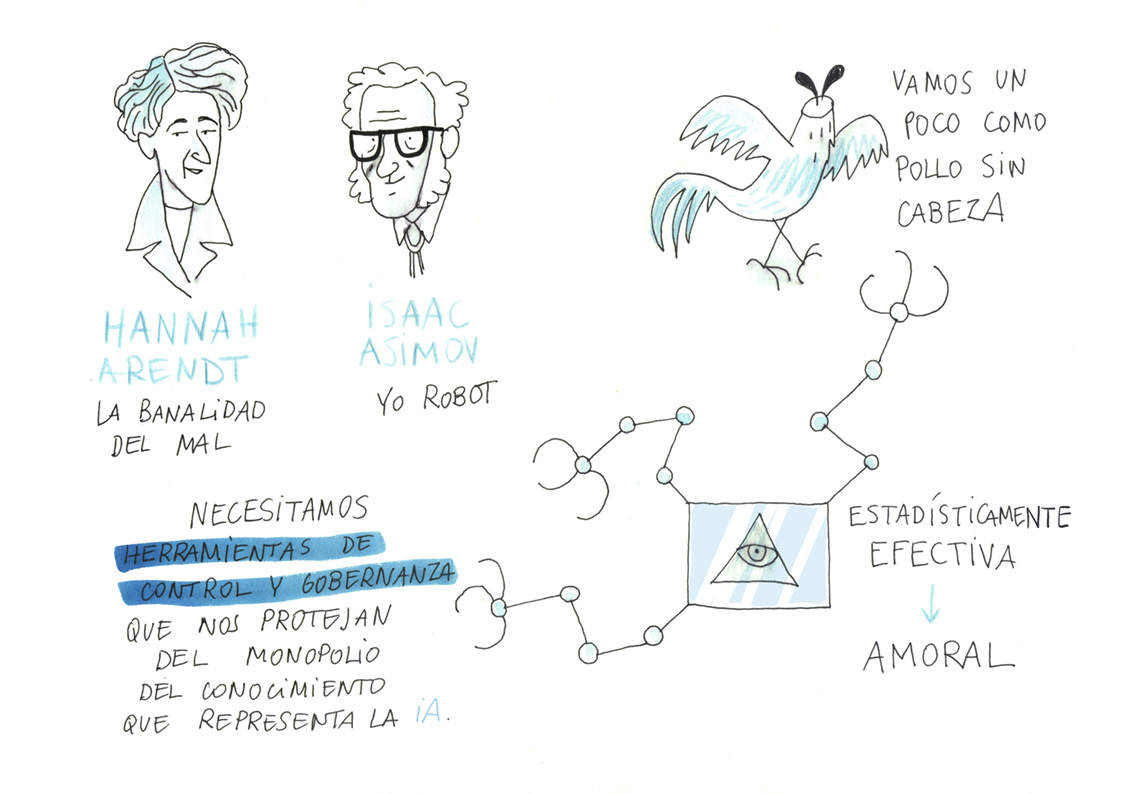 HANNAH
ARENDT
LA BANALIDAD
DEL MAL
iSAAC
ASiMOV
YO ROBOT
VAMOS UN
POCO COMO
POLLO SiN
CABEZA
NECESiTAMOS
HERRAMiENTAS DE
CONTROL Y GOBERNANZA
QUE NOS PROTEJAN
DEL MONOPOLiO
DEL CONOCiMiENTO
QUE REPRESENTA LA iA.
ESTADÍSTiCAMENTE
EFECTiVA
AMORAL